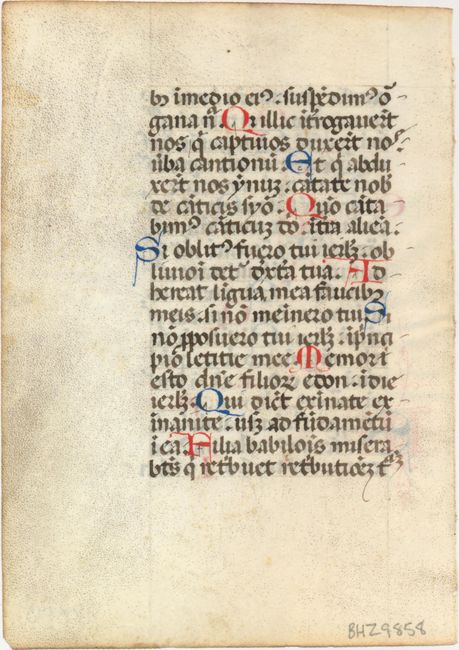 bꝫ i medio eiꝰ . suspēdimꝰ ō
gana nr̄a Qr illic īt̄rogauert̄
nos q̄ captiuos duxert̄ nos
ūba cantionū Et q̄ abdu
xert̄ nos ymnuꝫ . cātate nob̄
de cāticis syō . Quō cāta
bimꝰ cāticuꝫ dn̄i . ī tr̄a alieā .
Si oblitꝰ fuero tui ierlꝫ . ob
liuiōi det̄ dext̄a tua . Ad
hereat līgua mea faucibꝫ
meis . si nō meinero tui Si
nō ꝓposuero tui ierlꝫ . ī pⁱnci
pio letitie mee Memor
esto dn̄e filioꝝ edon . ī die
ierlꝫ . Qui dicūt exinate ex
inanite . usqꝫ ad fūdamētū
ī ea . Filia babilois misera
bilis q̄ ret̄buet ret̄buticeꝫ
BHZ9858